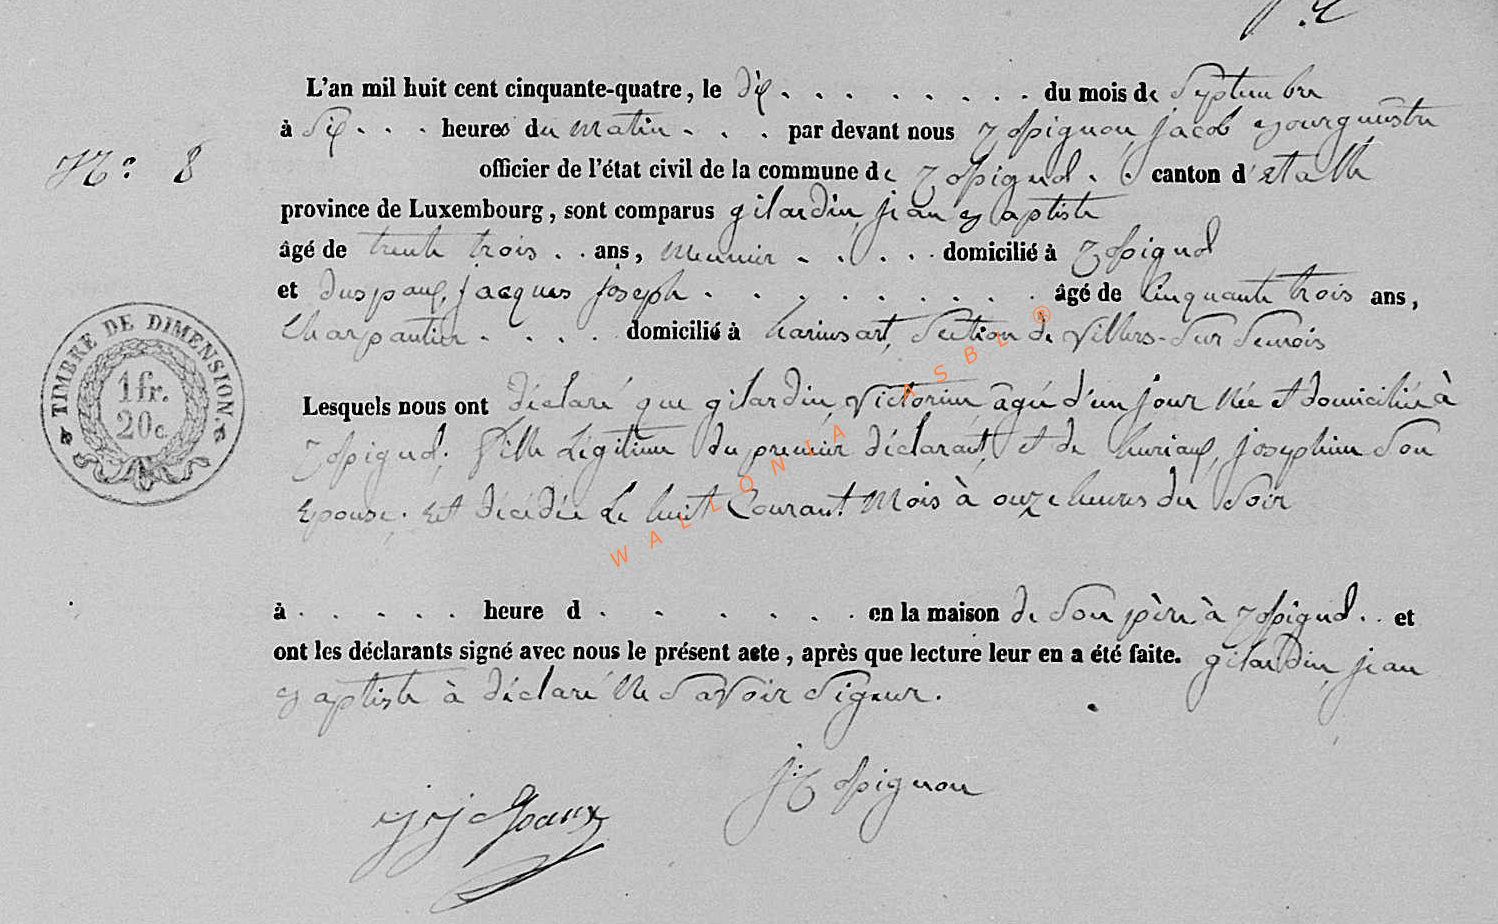 L'an mil huit cent cinquante-quatre, le dix . . . . . . . . . du mois de Septembre
à Six . . . heures du matin . . . par devant nous Rossignon, jacob Bourgmestre
N.° 8
officier de l'état civil de la commune de Rossignol . . canton d'Etalle
province de Luxembourg, sont comparus gilardin, jean Baptiste
âgé de trente trois . . ans, Meunier . . . . . domicilié à Rossignol
et jacques joseph . . . . . . . . . âgé de Cinquante trois ans,
Charpentier . . . . . domicilié à harinsart, Section de Villers-Sur Semois
TIMBRE DE DIMENSION
1 fr.
20 c
Lesquels nous ont déclaré que gilardin, Victorine agée d'un jour Née et domiciliée à
Rossignol. fille Légitime du premier déclarant, et de josephine Son
Epouse. Est décédée Le huit Courant Mois à onze heures du Soir
à . . . . . heure d . . . . . . en la maison de Son père à Rossignol . . et
ont les déclarants signé avec nous le présent acte, après que lecture leur en a été faite. gilardin, jean
Baptiste à déclaré Ne Savoir Signer.
j: Rossignon
WALLONIA ASBL ®